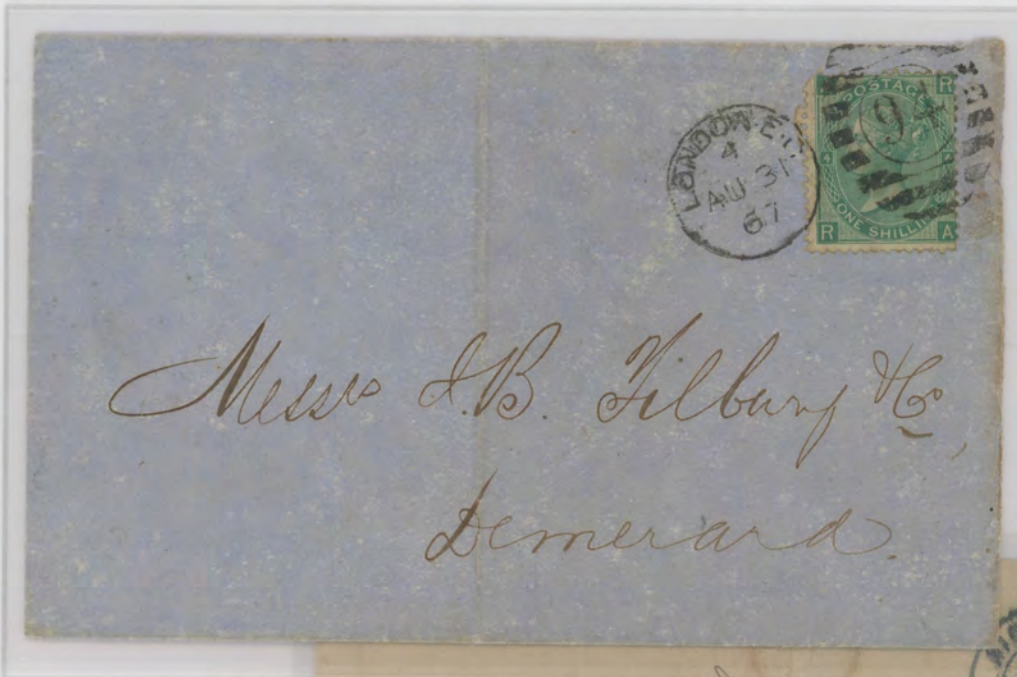 LONDON·E.C
4
AU 31
67
POSTAGE
R
94
4
ONE SHILLING
R A
Messrs J.B. Tilbury & Co,
Demerara.